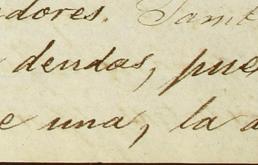 dores. Tamb
dendas, pue
e una, la a